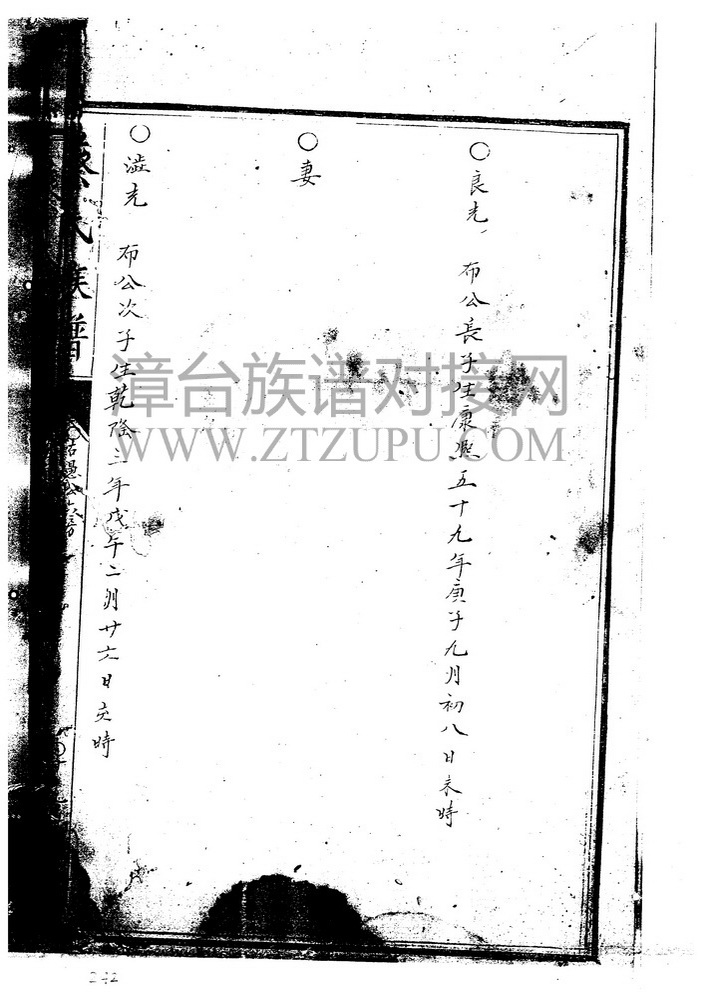 ○良光 布公長子生康熙五十九年庚子九月初八日未時
○妻
○滋光 布公次子生乾隆三年戊午二月廿六日亥時
氏族譜
漳台族谱对接网
WWW.ZTZUPU.COM
242